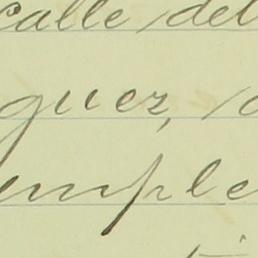 calle del
guez,
emple